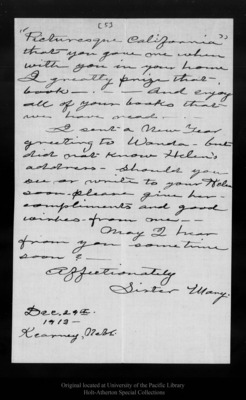 (5)
"Picturesque California"
that you gave me when
with you in your home
I greatly prize that
book - . - And enjoy
all of your books that
we have read. -
I sent a New Year
greeting to Wanda - but
did not know Helen's
address - Should you
see or write to your
soon please give her
compliments and good
wishes - from me.
May I hear
from you sometime
soon? -
Affectionately
Sister Mary.
Dec. 29th.
1913 -
Kearney, Nebr.
Original located at University of the Pacific Library
Holt-Atherton Special Collections